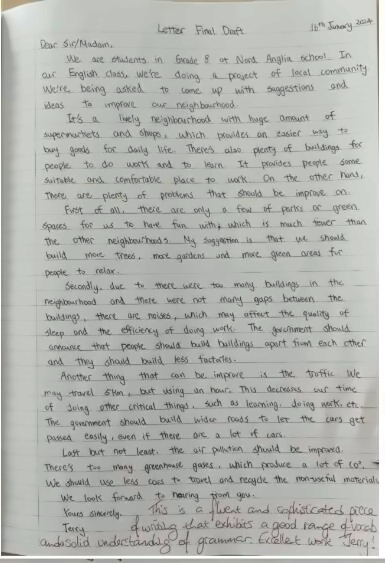 Letter Final Draft
16th January 2024
Dear Sir/Madam,
We are students in Grade 8 at Nord Anglia school. In
our English class, we're doing a project of local community
We're being asked to come up with suggestions and
ideas to improve our neighbourhood.
It's a lively neighbourhood with huge amount of
supermarkets and shops, which provides an easier way to
buy goods for daily life. There's also plenty of buildings for
people to do work and to learn. It provides people some
suitable and comfortable place to work. On the other hand,
There are plenty of problems that should be improve on.
First of all, there are only a few of parks or green
spaces for us to have fun with, which is much fewer than
the other neighbourhoods. My suggestion is that we should
build more trees, more gardens and more green areas for
people to relax.
Secondly, due to there were too many buildings in the
neighbourhood and there were not many gaps between the
buildings, there are noises, which may affect the quality of
sleep and the efficiency of doing work. The government should
announce that people should build buildings apart from each other
and they should build less factories.
Another thing that can be improve is the traffic. We
may travel 5km, but using an hour. This decreases our time
of doing other critical things, such as learning, doing work, etc.
The government should build wider roads to let the cars get
passed easily, even if there are a lot of cars.
Last but not least, the air pollution should be improved.
There's too many greenhouse gases, which produce a lot of CO².
We should use less cars to travel and recycle the non-useful materials
We look forward to hearing from you.
Yours sincerely,
Jerry
This is a fluent and sophisticated piece
of writing that exhibits a good range of vocab
and solid understanding of grammar. Excellet work Jerry!